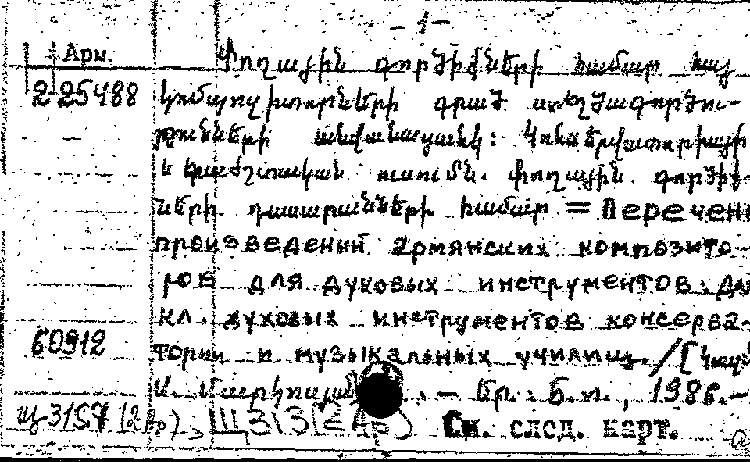 - 1 -
Арм.
Փողային գործիքների համար հայ
225488 կոմպոզիտորների գրած ստեղծագործու-
թյունների անվանացանկ: Կոնսերվատորիայի
և երաժշտական ուսումն. փողային գործիք-
ների դասարանների համար = Перечень
произведений армянских композито-
ров для духовых инструментов. Для
кл. духовых инструментов консерва-
60912 тории и музыкальных училищ. / [Կազմ
Ա. Մարկոսյան]. - Եր.: Б. и., 1986. -
См. след. карт.